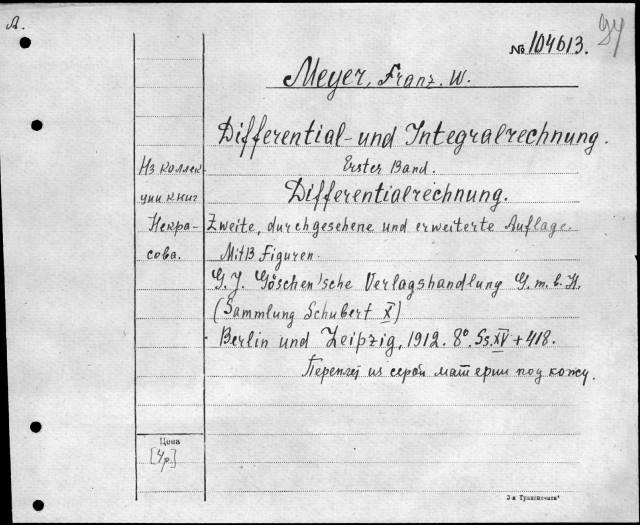 А.
№ 104613.
Meyer, Franz. W.
Differential- und Integralrechnung.
Erster Band.
Differentialrechnung.
Zweite, durchgesehene und erweiterte Auflage.
Mit 13 Figuren.
G. J. Göschen'sche Verlagshandlung G. m. b. H.
(Sammlung Schubert X)
Berlin und Leipzig, 1912. 8° Ss. XV + 418.
Переплет из серой материи под кожу.
Из коллек-
ции книг
Некра-
сова.
Цена
[4р.]